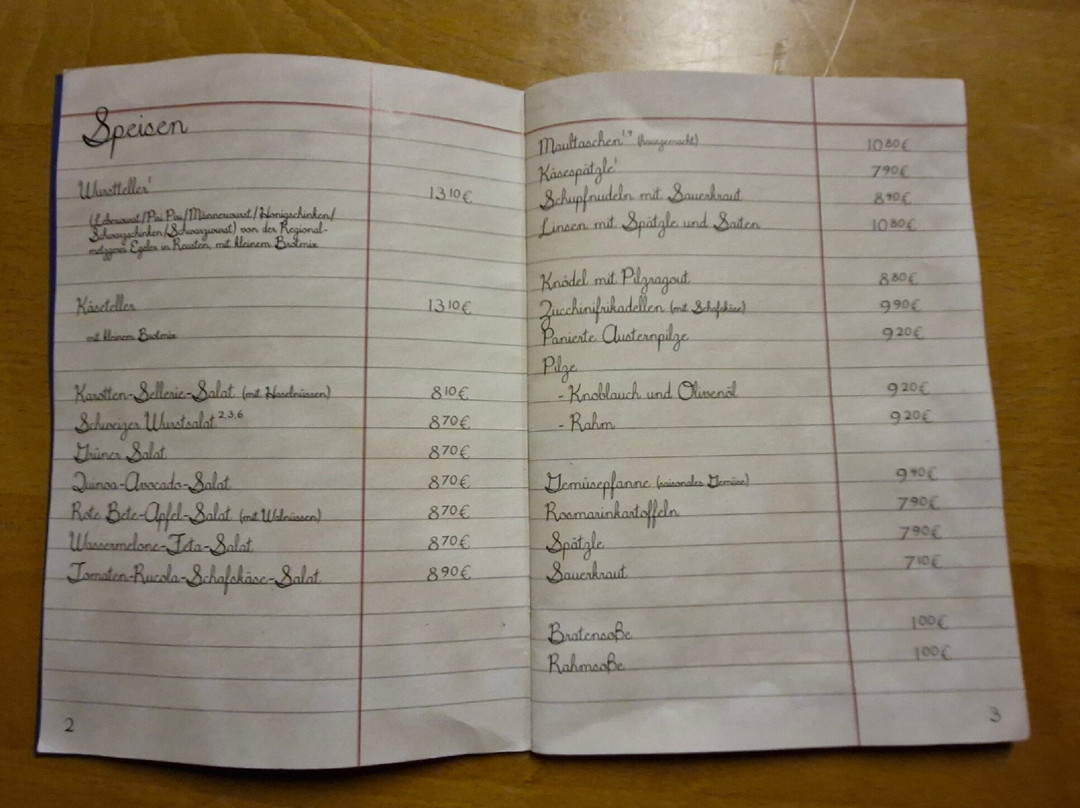 Speisen
Wurstteller¹ 13¹⁰€
(Leberwurst/Piri Piri/Männerwurst/Honigschinken/
Schwarzschinken/Schwarzwurst) von der Regional-
metzgerei Egeler in Reusten, mit kleinem Brotmix
Käseteller 13¹⁰€
mit kleinem Brotmix
Karotten-Sellerie-Salat (mit Haselnüssen) 8¹⁰€
Schweizer Wurstsalat²,³,⁶ 8⁷⁰€
Grüner Salat 8⁷⁰€
Quinoa-Avocado-Salat 8⁷⁰€
Rote Bete-Apfel-Salat (mit Walnüssen) 8⁷⁰€
Wassermelone-Feta-Salat 8⁷⁰€
Tomaten-Rucola-Schafskäse-Salat 8⁹⁰€
2
Maultaschen¹,⁴ (hausgemacht) 10⁸⁰€
Käsespätzle¹ 7⁹⁰€
Schupfnudeln mit Sauerkraut 8⁹⁰€
Linsen mit Spätzle und Saiten 10⁸⁰€
Knödel mit Pilzragout 8⁸⁰€
Zucchinifrikadellen (mit Schafskäse) 9⁹⁰€
Panierte Austernpilze 9²⁰€
Pilze
- Knoblauch und Olivenöl 9²⁰€
- Rahm 9²⁰€
Gemüsepfanne (saisonales Gemüse) 9⁴⁰€
Rosmarinkartoffeln 7⁹⁰€
Spätzle 7⁹⁰€
Sauerkraut 7¹⁰€
Bratensoße 1⁰⁰€
Rahmsoße 1⁰⁰€
3